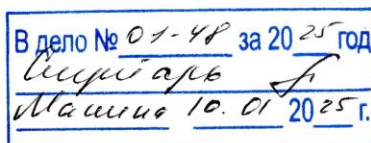 В дело № 01-48 за 2025 год
Секретарь
Машина 10.01 2025 г.